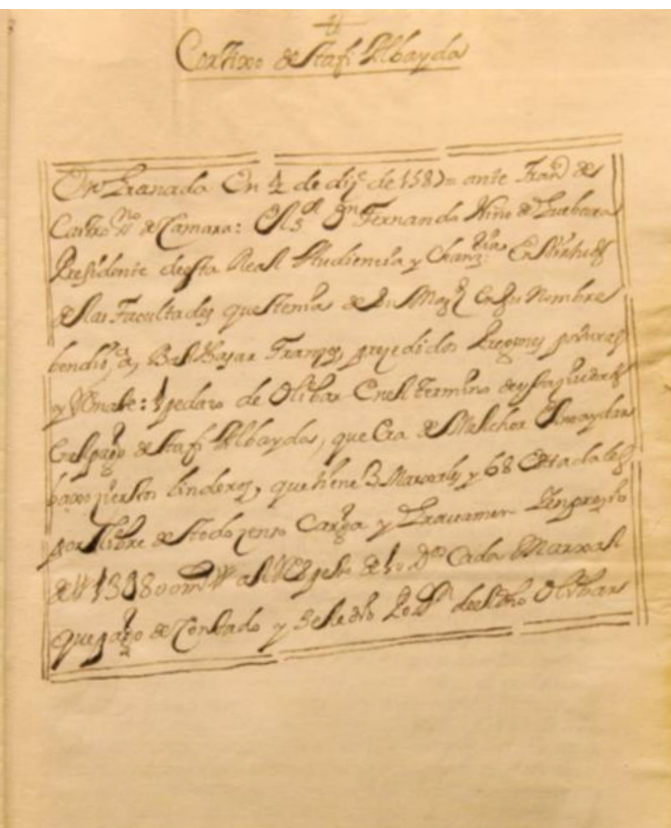 Cortixo de Stafi Albayda
En Granada En 4 de dij.e de 1587= ante Fran.co de
Castro ss.no de Camara: El S.or Dn Fernando Niño de Guebara
Presidente desta Real Audiencia y Chanz.ria En Virtud
de las Facultades que tenia de Su Mag.d En su Nombre
bendio, a, Balthasar Franzes, prezedidos Pregones posturas
y Rmate: 1 pedazo de Olibar En el Termino desta
del pago de Stafi Albayda, que Era de Melchor
baxo ziertos linderos, que tiene 3 Marxales y 68 Estadales
por libre de todo zenso Carga y Gravamen En prezio
de Cada Marxal
que pago de Contado y Se le dio Pos.on del dho Olibar